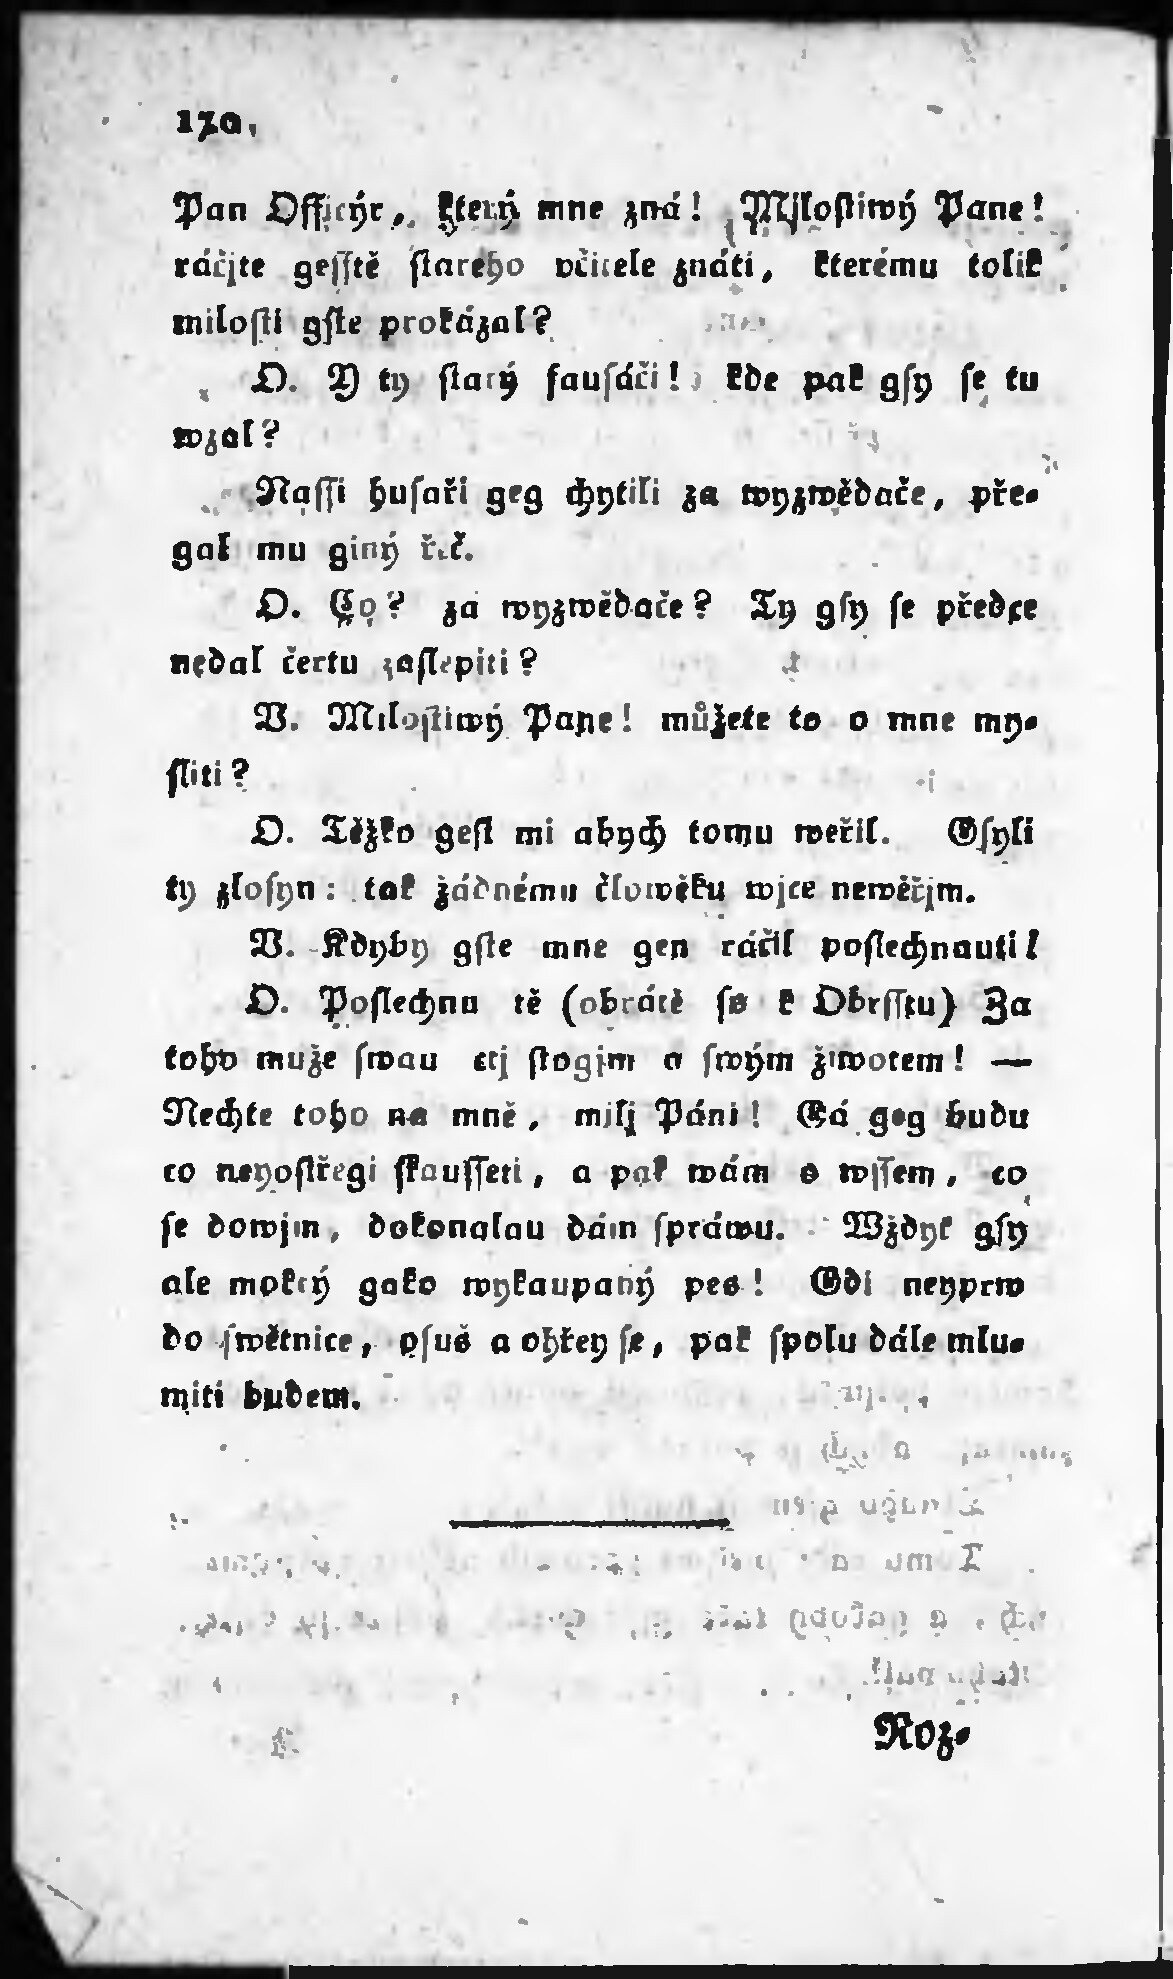 170.
Pan Officýr, který mne zná! Mjlostiwý Pane!
ráčjte gesstě starého včitele znáti, kterému tolik
milosti gste prokázal?
O. Y ty starý fausáči! kde pak gsy se tu
wzal?
Nassi husaři geg chytili za wyzwědače, pře-
gal mu giný řeč.
O. Co? za wyzwědače? Ty gsy se předce
nedal čertu zaslepiti?
V. Milostiwý Pane! můžete to o mne my-
sliti?
O. Těžko gest mi abych tomu weřil. Gsyli
ty zlosyn: tak žádnému člowěku wjce newěřjm.
V. Kdyby gste mne gen ráčil poslechnauti!
O. Poslechnu tě (obrátě se k Obrsstu) Za
toho muže swau ctj stogjm a swým žiwotem! —
Nechte toho na mně, milj Páni! Gá geg budu
co neyostřegi skausseti, a pak wám o wssem, co
se dowjm, dokonalau dám spráwu. Wždyk gsy
ale mokrý gako wykaupaný pes! Gdi neyprw
do swětnice, osuš a ohřey se, pak spolu dále mlu-
witi budem.
Roz-